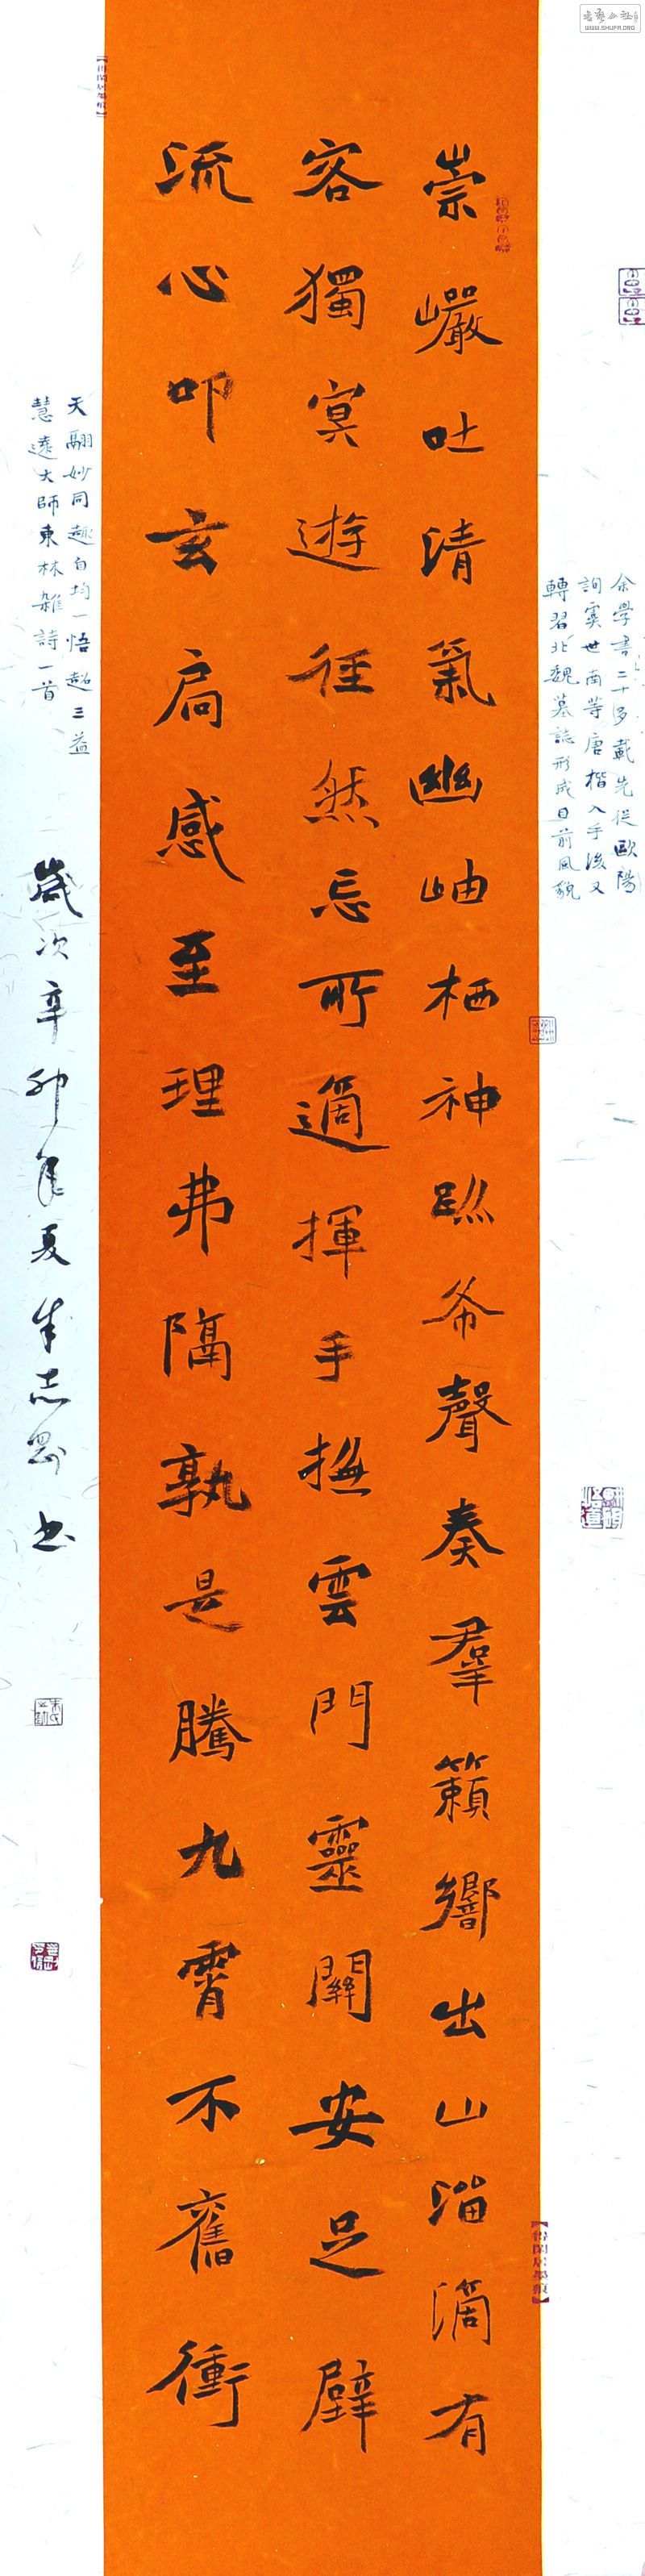 WWW.SHUFA.ORG
余學書二十多載先從歐陽
詢虞世南等唐楷入手後又
轉習北魏墓誌形成目前風貌
崇巖吐清氣幽岫栖神跡希聲奏羣籟響出山溜滴有
客獨冥遊徑然忘所適揮手撫雲門靈關安足闢
流心叩玄扃感至理弗隔孰是騰九霄不奮衝
天翮妙同趣自均一悟超三益
慧遠大師東林雜詩一首
歲次辛卯年夏朱志剛書